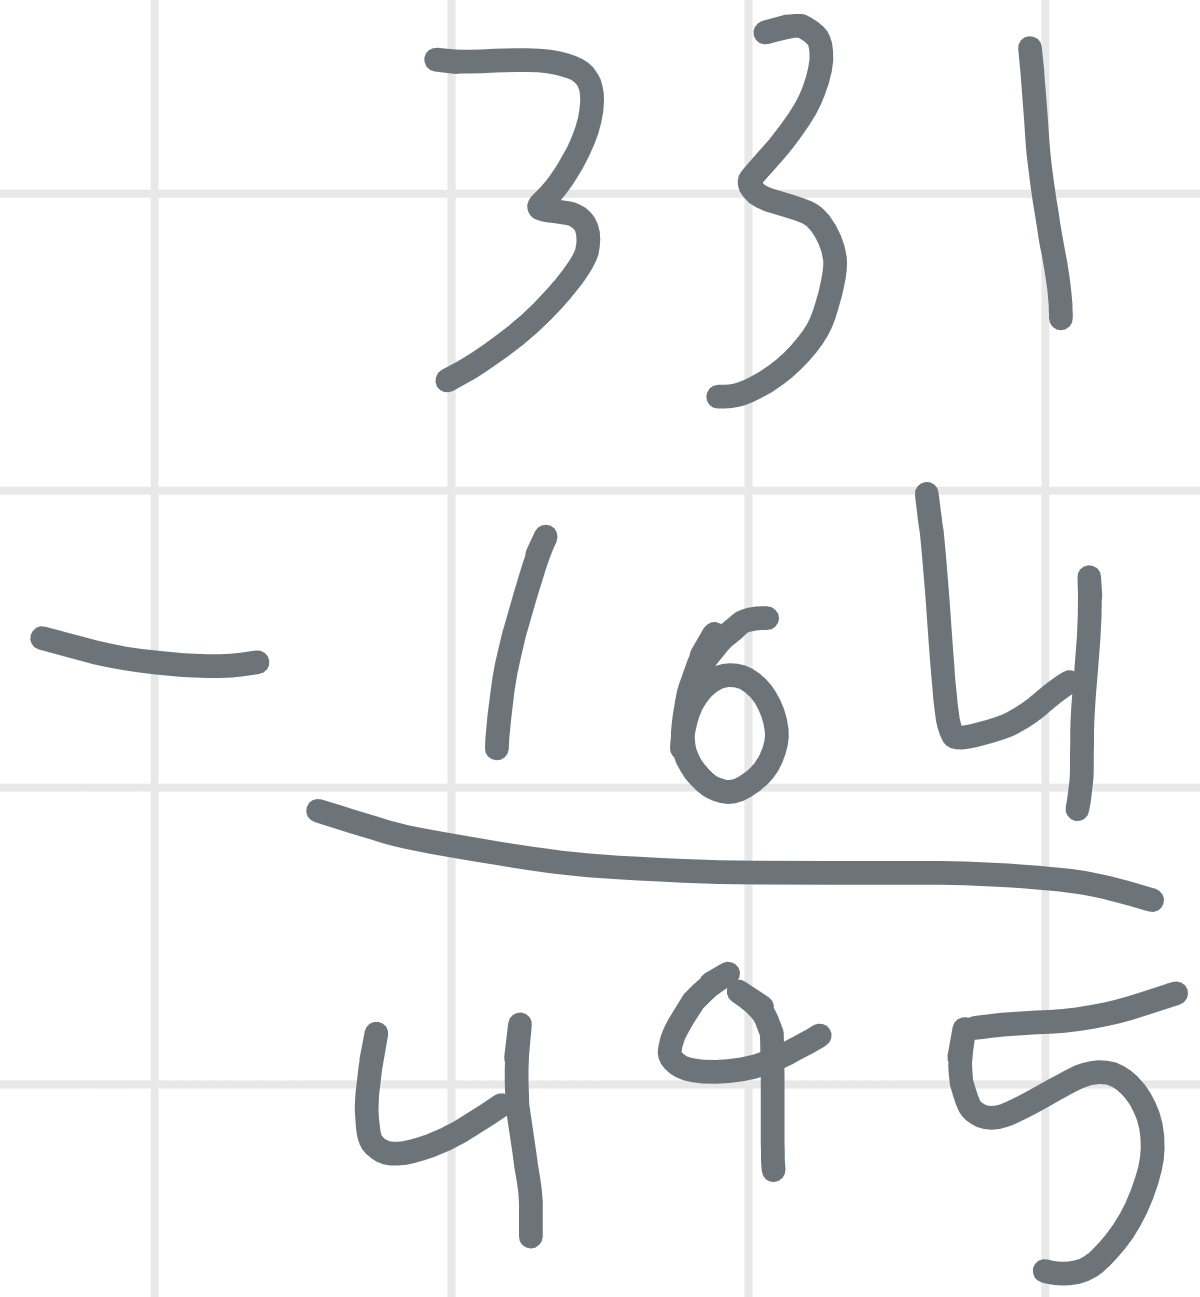 331
- 164
495